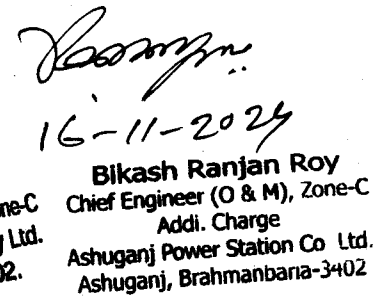 16-11-2024
ne-C
y Ltd.
02.
Bikash Ranjan Roy
Chief Engineer (O & M), Zone-C
Addi. Charge
Ashuganj Power Station Co Ltd.
Ashuganj, Brahmanbaria-3402